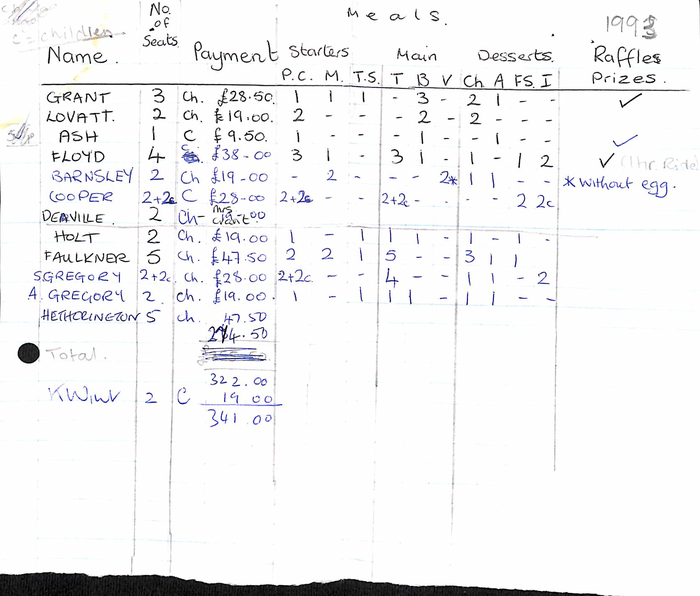 Meals. 1993
c = children
No. of Seats
Name. Payment Starters Main Desserts. Raffles Prizes.
P.C. M. T.S. T B V Ch A FS. I
GRANT 3 Ch. £28.50. 1 1 1 - 3 - 2 1 - - ✓
LOVATT. 2 Ch. £19.00. 2 - - - 2 - 2 - - -
ASH 1 C £9.50. 1 - - - 1 - - 1 - - ✓
FLOYD 4 C £38-00 3 1 - 3 1 - 1 - 1 2 ✓ (1hr Ride)
BARNSLEY 2 Ch £19-00 - 2 - - - 2* 1 1 - - * Without egg.
COOPER 2+2c C £28-00 2+2c - - 2+2c - - - - 2 2c
DEAVILLE 2 Ch- Mrs Grant. 19.00
HOLT 2 Ch. £19.00 1 - 1 1 1 - 1 - 1 -
FAULKNER 5 Ch. £47.50 2 2 1 5 - - 3 1 1
S.GREGORY 2+2c. Ch. £28.00 2+2c. - - 4 - - 1 1 - 2
A. GREGORY 2. ch. £19.00. 1 - 1 1 1 - 1 1 - -
HETHERINGTON 5 ch. 47.50
274.50
Total.
322.00
2 C 19 00
341.00